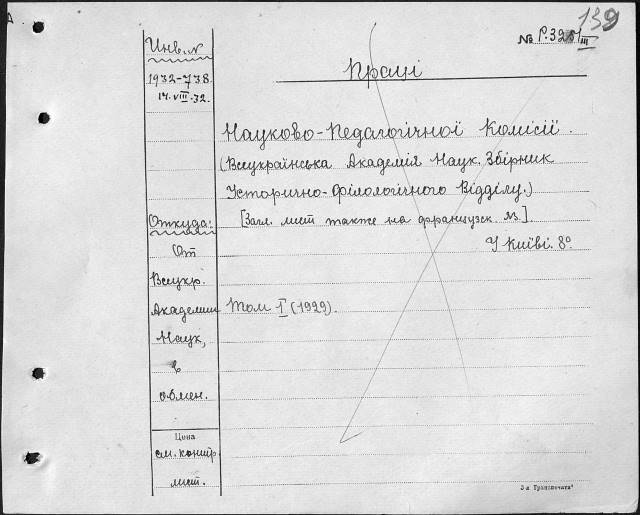 139
№ Р.3251/III
Инв. №
1932-738.
14.VIII.32.
Праці
Науково-Педагогічної Комісії.
(Всеукраїнська Академія Наук. Збірник
Історично-філологічного Відділу.)
[Загл. лист также на французск. яз.].
У Київі. 8º.
Откуда:
От
Всеукр.
Академии
Наук,
в
обмен.
Том I (1929).
Цена
см. контр.
лист.
3-я Транспечать